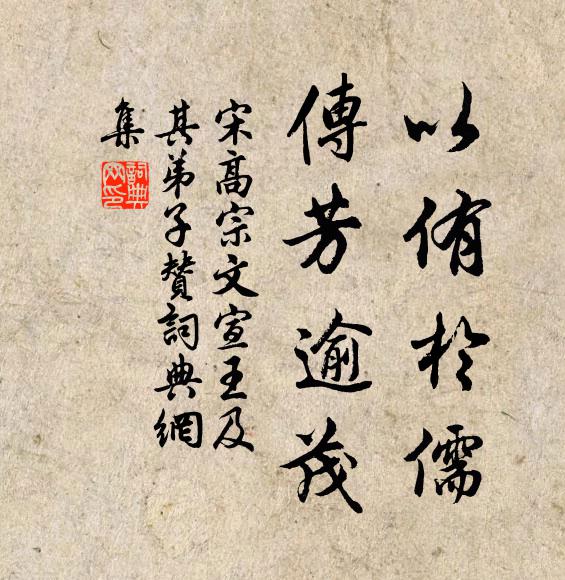 以侑於儒
傳芳逾茂
宋高宗文宣王及
其弟子贊詞典網
集
詞典網印